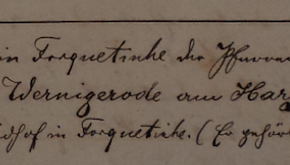 in Torquetinhe der Pfarrer
Wernigerode am Harz
dhof in Torquetinhe. (Er gehör